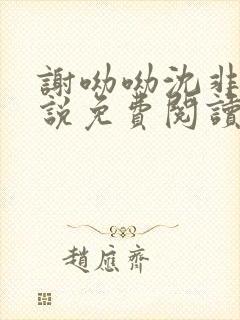 謝呦呦沈非
説免費閱讀
趙應齊